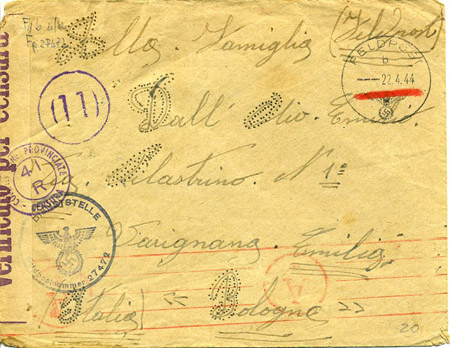 Fp 27472
(Feldpost)
Alla Famiglia
FELDPOST
b
22.4.44
Dall' Olio Emilio
(11)
Verificato per censura
PROVINCIALE
4/1
R
Pilastrino N° 1
DIENSTSTELLE
Feldpostnummer 27472
Varignana Emilia
A
(Italia) « Bologna »
20